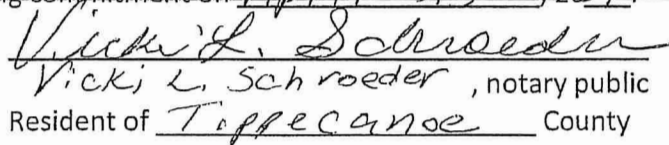 Vicki L. Schroeder
Vicki L. Schroeder, notary public
Resident of Tippecanoe County